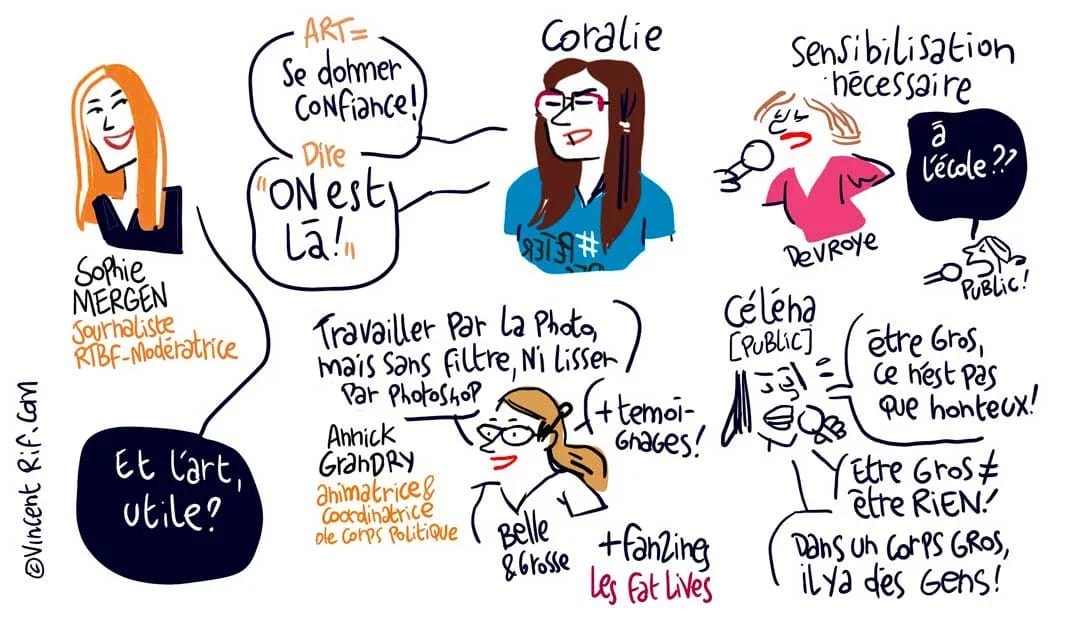 Sophie
MERGEN
Journaliste
RTBF-Modératrice
Et l'art,
utile?
ART=
Se donner
CONFiance!
Dire
"ON est
Là!"
Coralie
#RETER
Sensibilisation
nécessaire
DeVROYe
à
l'école??
PUBLIC!
Travailler Par la Photo,
mais sans filtre, Ni Lisser
Par Photoshop
+ temoi-
gnages!
Annick
GranDRY
animatrice &
Coordinatrice
de Corps Politique
Belle
& Grosse
+ fanzines
Les Fat Lives
Céléna
[PUBLIC]
être Gros,
ce n'est Pas
que honteux!
Être Gros ≠
être RiEN!
Dans un Corps GROS,
il y a des Gens!
©Vincent Rif.Com